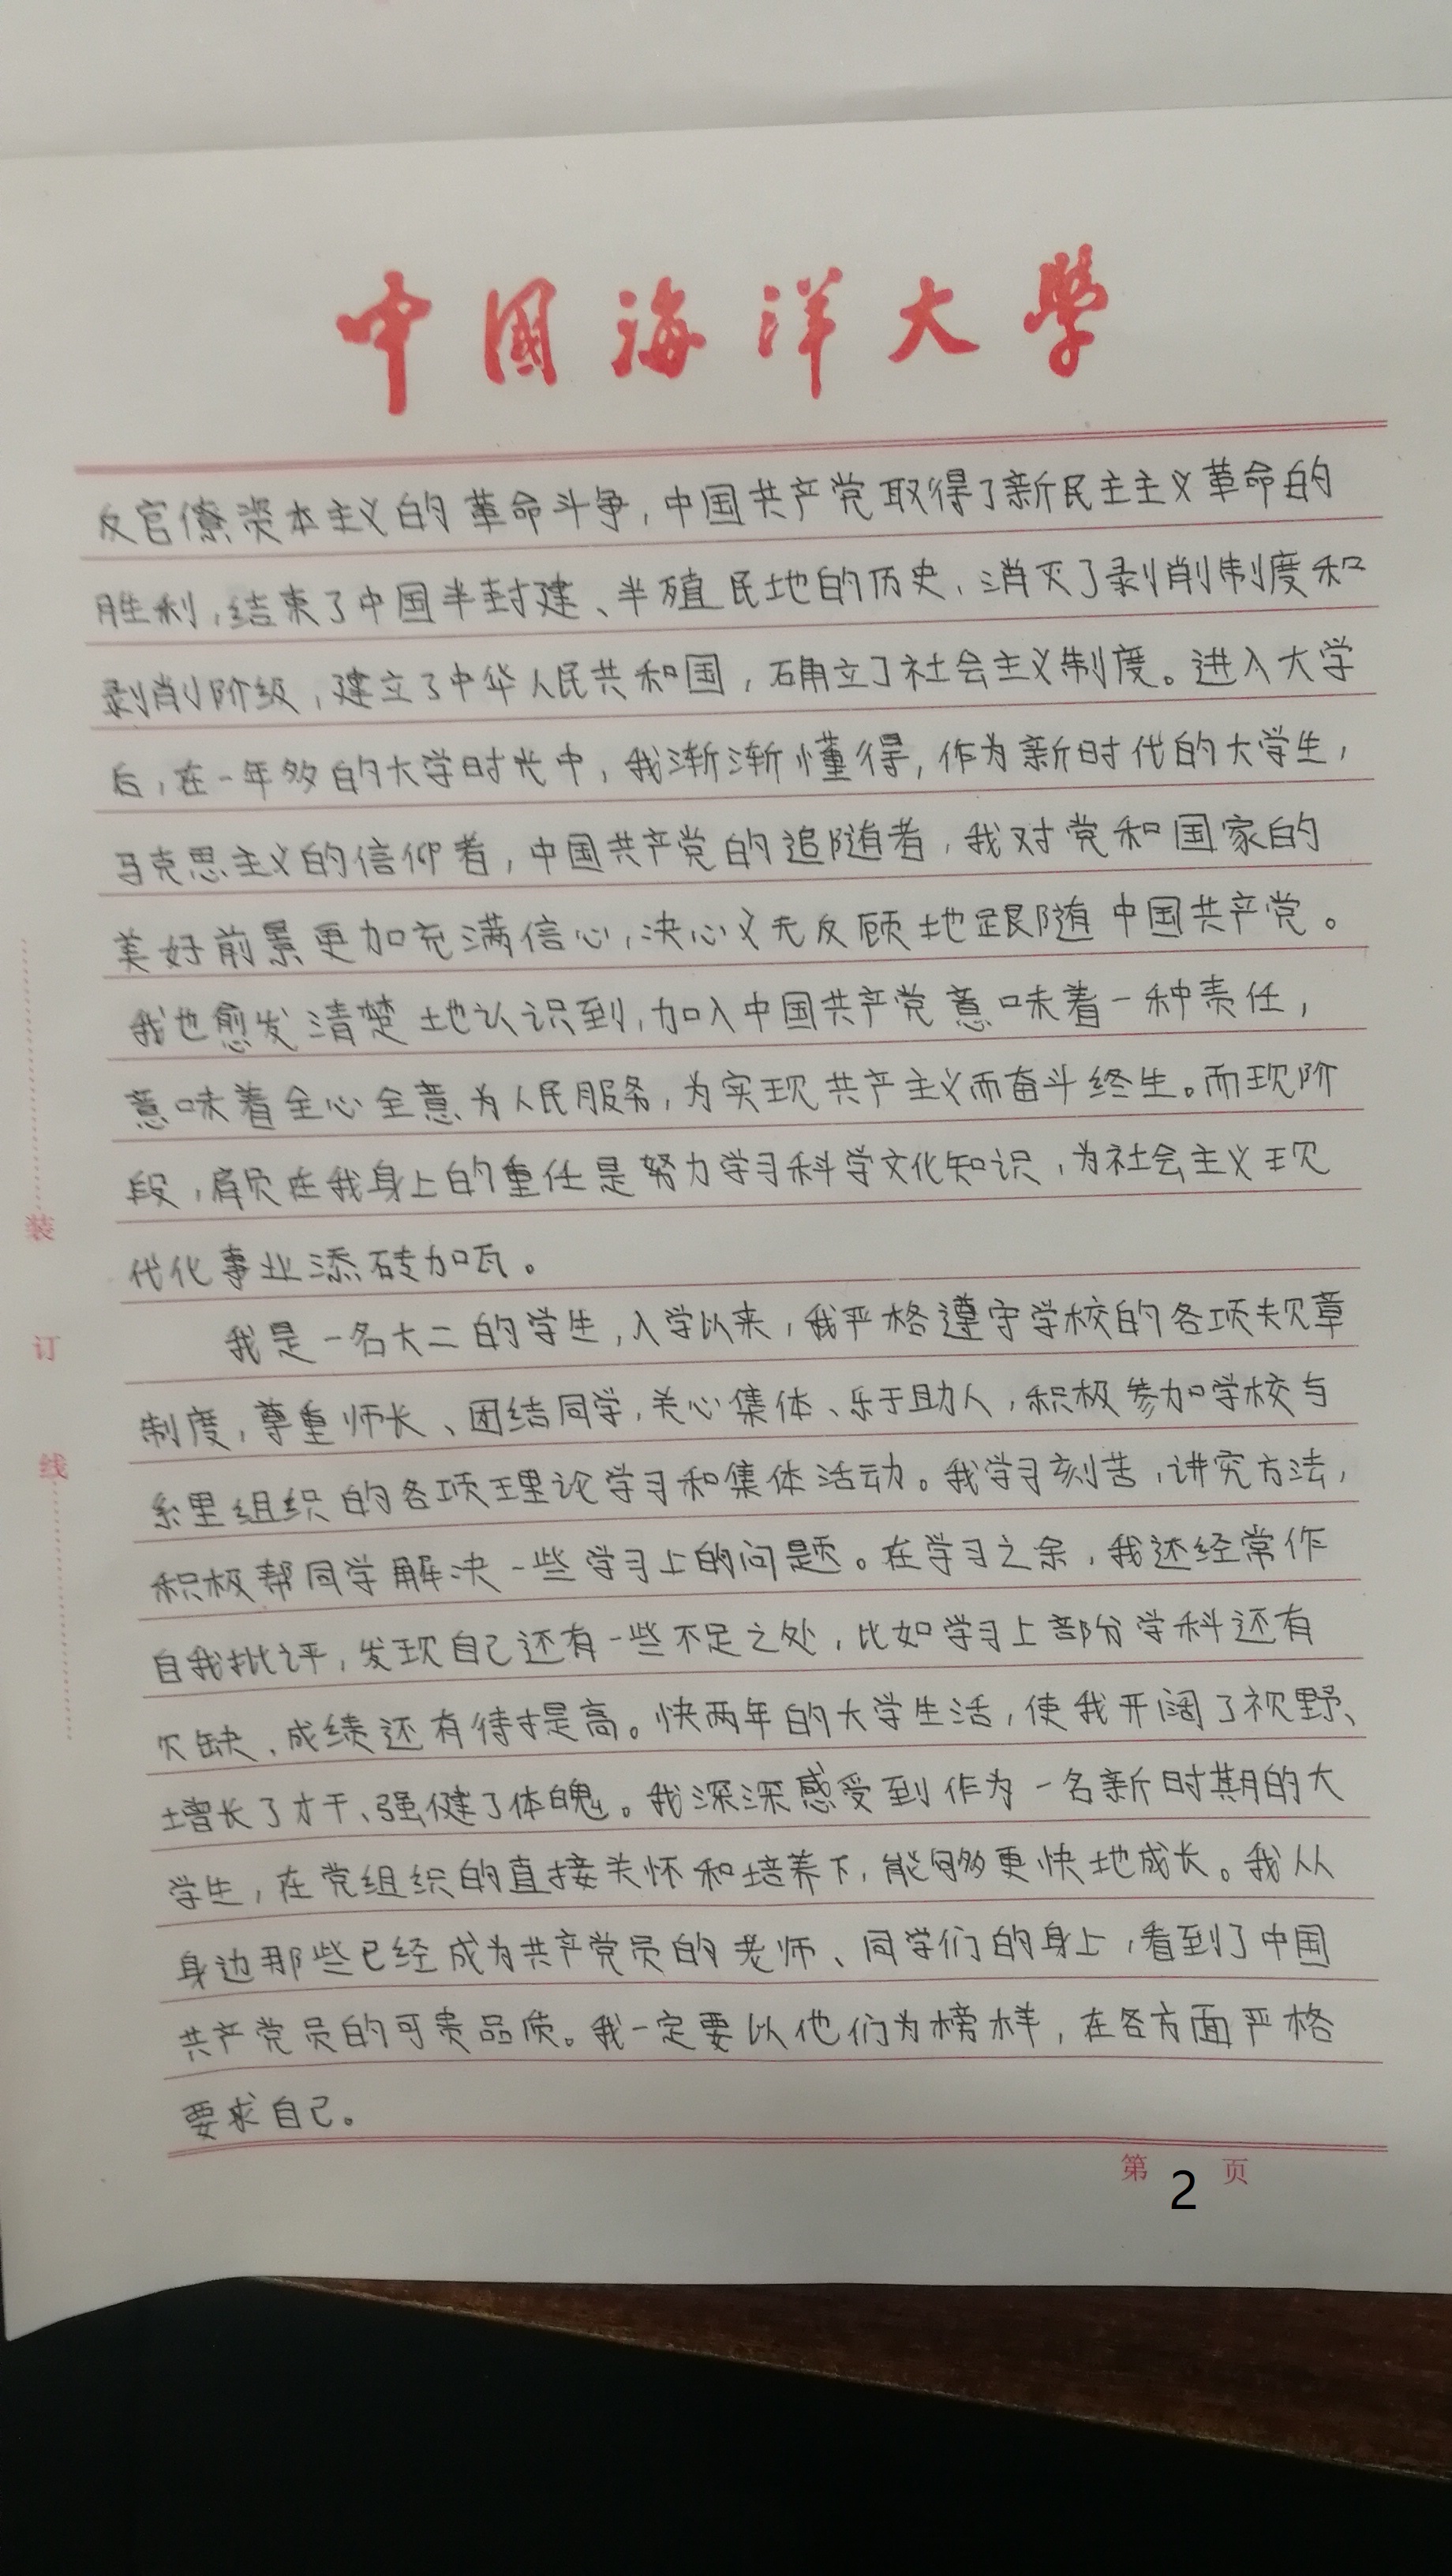 中國海洋大學
反官僚资本主义的革命斗争,中国共产党取得了新民主主义革命的
胜利,结束了中国半封建、半殖民地的历史,消灭了剥削制度和
剥削阶级,建立了中华人民共和国,确立了社会主义制度。进入大学
后,在一年多的大学时光中,我渐渐懂得,作为新时代的大学生,
马克思主义的信仰者,中国共产党的追随者,我对党和国家的
美好前景更加充满信心,决心义无反顾地跟随中国共产党。
我也愈发清楚地认识到,加入中国共产党意味着一种责任,
意味着全心全意为人民服务,为实现共产主义而奋斗终生。而现阶
段,肩负在我身上的重任是努力学习科学文化知识,为社会主义现
代化事业添砖加瓦。
我是一名大二的学生,入学以来,我严格遵守学校的各项规章
制度,尊重师长、团结同学,关心集体、乐于助人,积极参加学校与
系里组织的各项理论学习和集体活动。我学习刻苦,讲究方法,
积极帮同学解决一些学习上的问题。在学习之余,我还经常作
自我批评,发现自己还有一些不足之处,比如学习上部分学科还有
欠缺,成绩还有待提高。快两年的大学生活,使我开阔了视野、
增长了才干、强健了体魄。我深深感受到作为一名新时期的大
学生,在党组织的直接关怀和培养下,能够更快地成长。我从
身边那些已经成为共产党员的老师、同学们的身上,看到了中国
共产党员的可贵品质。我一定要以他们为榜样,在各方面严格
要求自己。
第 2 页
装
订
线